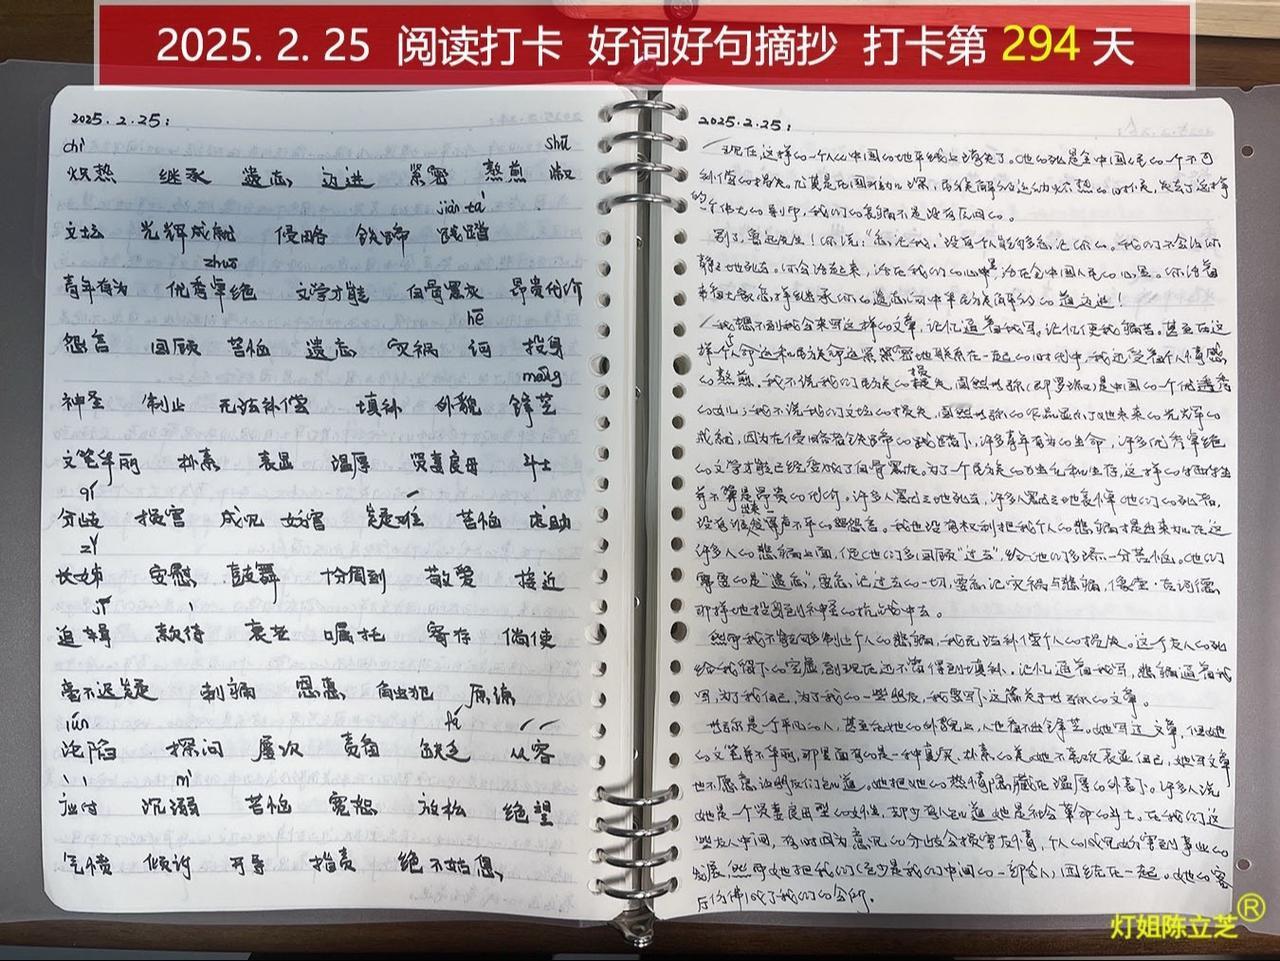 2025. 2. 25 阅读打卡 好词好句摘抄 打卡第 294 天
2025.2.25:
chì shū
炽热 继承 遗志 迈进 紧密 熬煎 淑
jiàn tà
文坛 光辉成就 侵略 铁蹄 践踏
zhuō
青年有为 优秀卓绝 文学才能 白骨黑灰 昂贵代价
hē
怨言 回顾 苦恼 遗忘 灾祸 诃 投身
máng
神圣 制止 无法补偿 填补 外貌 锋芒
文笔华丽 朴素 表显 温厚 贤妻良母 斗士
qí
分歧 损害 成见 妨害 疑难 苦恼 帮助
zǐ
长姊 安慰 鼓舞 十分周到 敬爱 接近
jí
追缉 款待 衰老 嘱托 寄存 倘使
毫不迟疑 制 恩惠 原谅
xiàn fá
陷 探问 屡次 责备 缺乏 从容
nì
应付 沉溺 苦恼 宽恕 放松 绝望
气愤 倾诉 开导 指责 绝不姑息
2025.2.25:
现在这样的一个人从中国的地平线上消失了。她的死是全中国人民的一个不可
补偿的损失。尤其是在国难 深，民族解放运动火热的时候，失去了这样
的一个伟大的 ，我们的悲痛不是没有原因的。
别了，鲁迅先生！你说：“忘记我。”没有一个人能够忘记你的。我们不会让你
静静地死去。你会活起来，活在我们的心中，活在全中国人民的心里。你活着
来看大家怎样继承你的遗志向中华民族解放的道路迈进！
我想不到我会来写这样的文章，记忆逼着我写。记忆使我痛苦。甚至在这
样一个人命运和民族命运紧紧密密地联系在一起的时刻中，我还受着个人情感
的熬煎。我不说我们民族的损失，固然世弥（即罗淑）是中国的一个优秀
的女儿；我不说我们文坛的损失，固然世弥的作品显示了她未来的光辉的
成就，因为在侵略者铁蹄的践踏下，许多青年有为的生命，许多优秀卓绝
的文学才能已经变成了白骨黑灰。为了一个民族的独立和生存，这样的牺牲
并不算是昂贵的代价。许多人默默地死去，许多人默默地哀悼他们的死者，
没有谁发出来一声不平的怨言。我也没有权利把我个人的悲痛提出来加在这
许多人的悲痛上面，使他们多回顾“过去”，给他们多添一分苦恼。他们
需要的是“遗忘”，要忘记过去的一切，要忘记灾祸与悲痛，像堂·吉诃德
那样地投身到神圣的抗战中去。
然而我不能够制止个人的悲痛，我无法补偿个人的损失。这个友人的死
给我留下的空虚，到现在还不曾得到填补。记忆逼着我写，悲痛逼着我
写，为了我自己，为了我的一些朋友，我要写下这篇关于世弥的文章。
世弥是一个平凡的人，甚至在她的外貌上，人也看不出锋芒。她写过文章，但她
的文笔并不华丽，那里面有的是一种真实、朴素的美。她不喜欢表显自己，她写文章
也不愿意让朋友们知道。她把她的热情隐藏在温厚的外表下。许多人说
她是一个贤妻良母型的女性，却少有人知道她是社会革命的斗士。在我们这
些友人中间，有时因为意见的分歧会损害友情，个人的成见妨害到事业的
发展，然而她把我们（至少是我们中间的一部分人）团结在一起。她的客
厅仿佛成了我们的会所。
灯姐陈立芝®